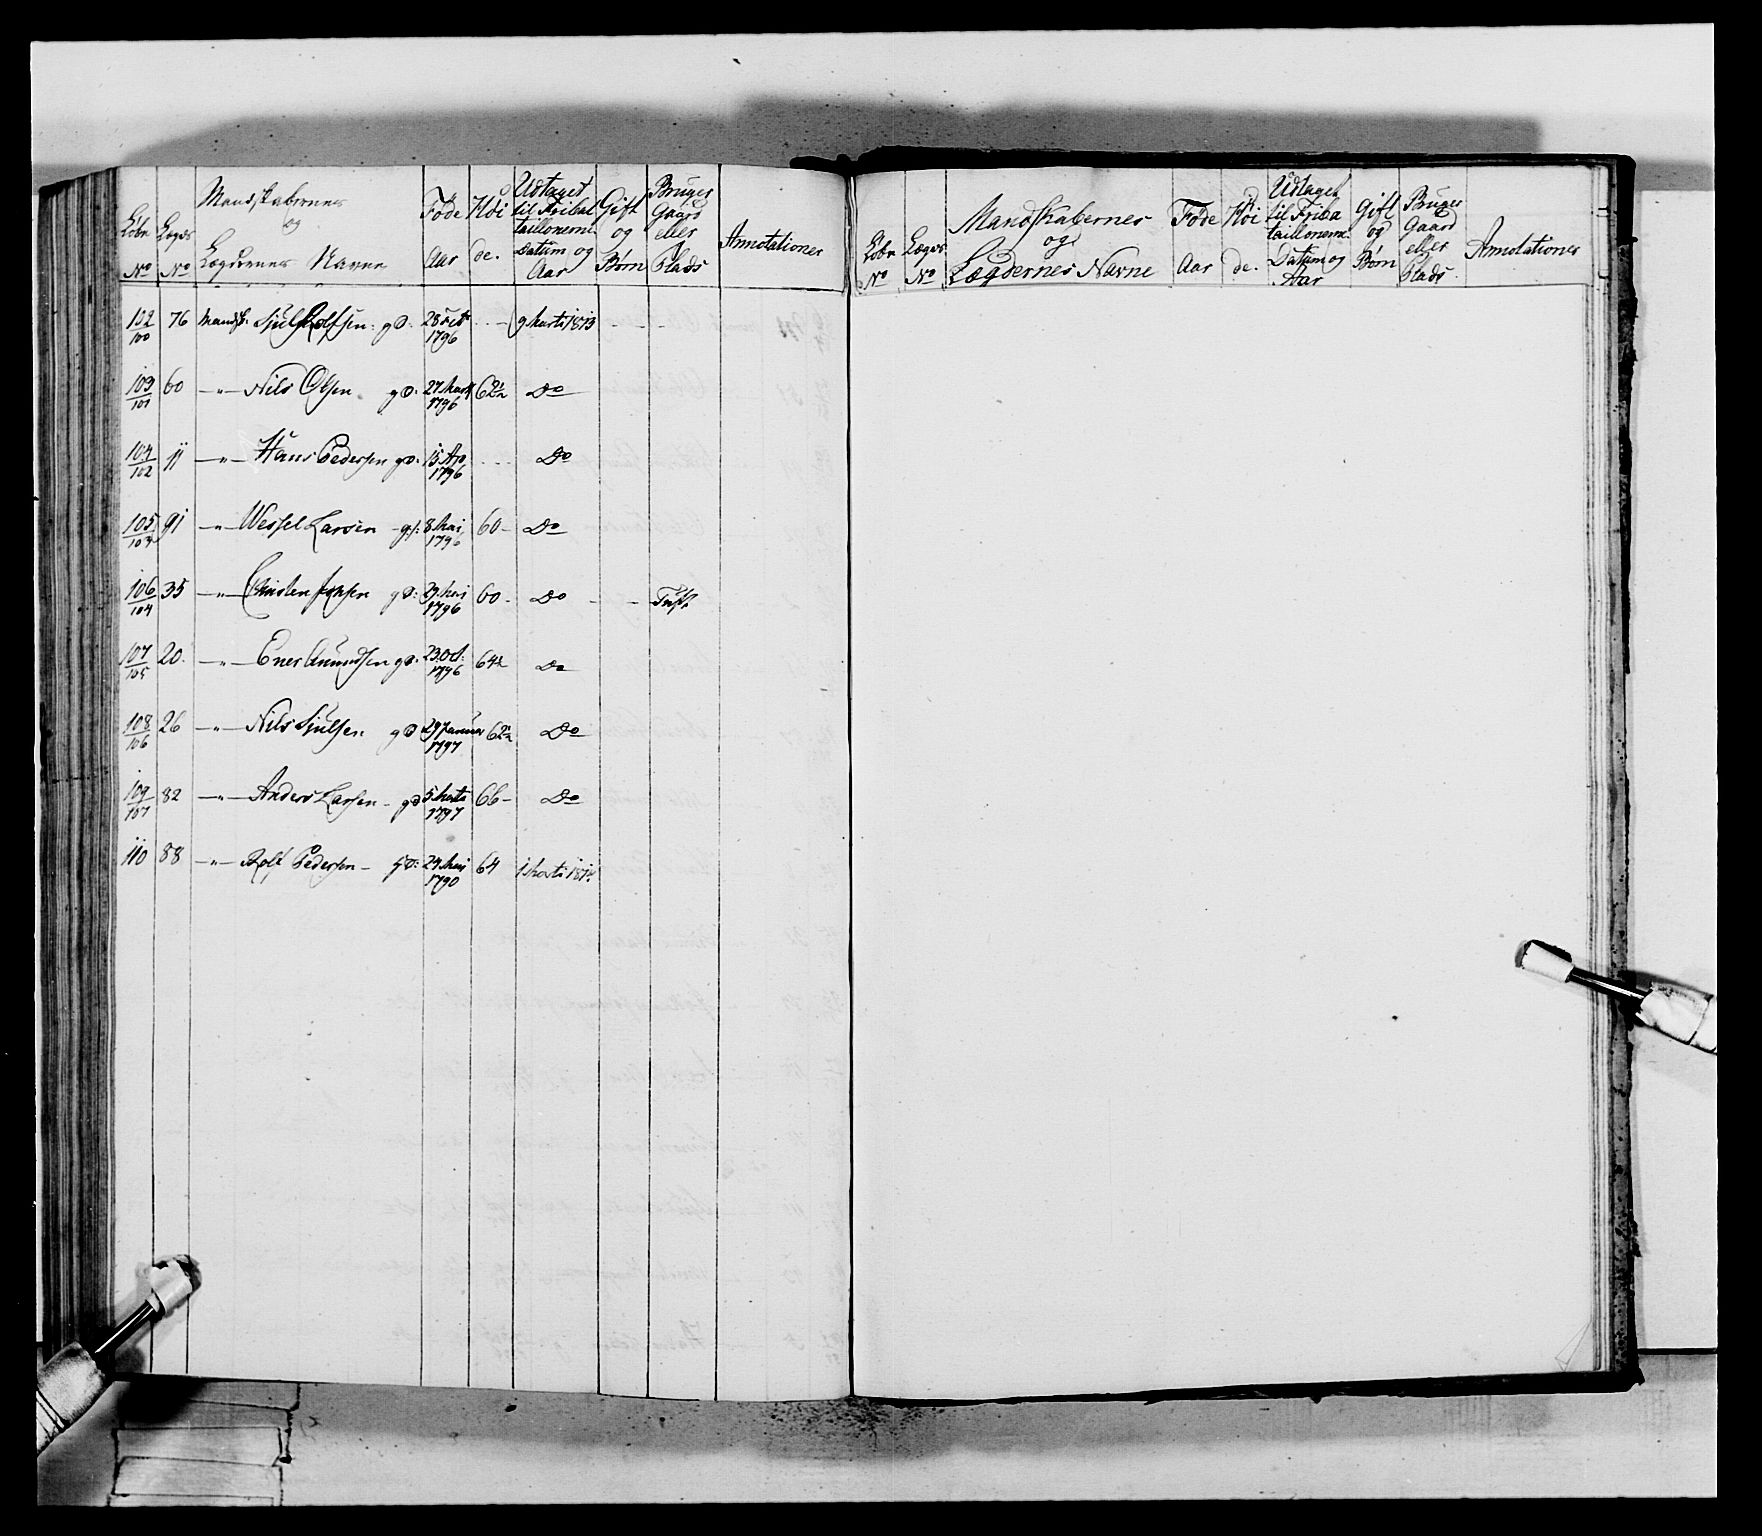 Løbe No
Lægds No
Mandskabernes og Lægdernes Navne
Føde Aar
Høide.
Udtaget til Fribataillonerne Datum og Aar
Gift og Børn
Bruger Gaard eller Plads
Annotationer
102/100 76 Mandsk. Siul Rolfsen g D: 1796 9 Marti 1813
103/101 60 —"— Nils Olsen g D: 27 Marti 1796 62½ Do
104/102 11 —"— Hans Pedersen g D: 15 Ap 1796 Do
105/103 91 —"— Wessel Larsen 8 Mai 1796 60 Do
106/104 35 —"— Christen g D: 29 Mai 1796 60 - Do - Tuft
107/105 20. —"— Ener Amundsen g D: 23 Oct: 1796 64½ Do
108/106 26 —"— Nils Siulsen g D 29 Januar 1797 62½ Do
109/107 82 —"— Anders Larsen - g D 5 Marti 1797 66 - Do
110 88 —"— Rolf Pedersen - g D: 24 Mai 1790 64 1 Marti
Løbe No
Lægds No
Mandskabernes og Lægdernes Navne
Føde Aar
Høide.
Udtaget til Fribataillonerne Datum og Aar
Gift og Børn
Bruger Gaard eller Plads.
Annotationer